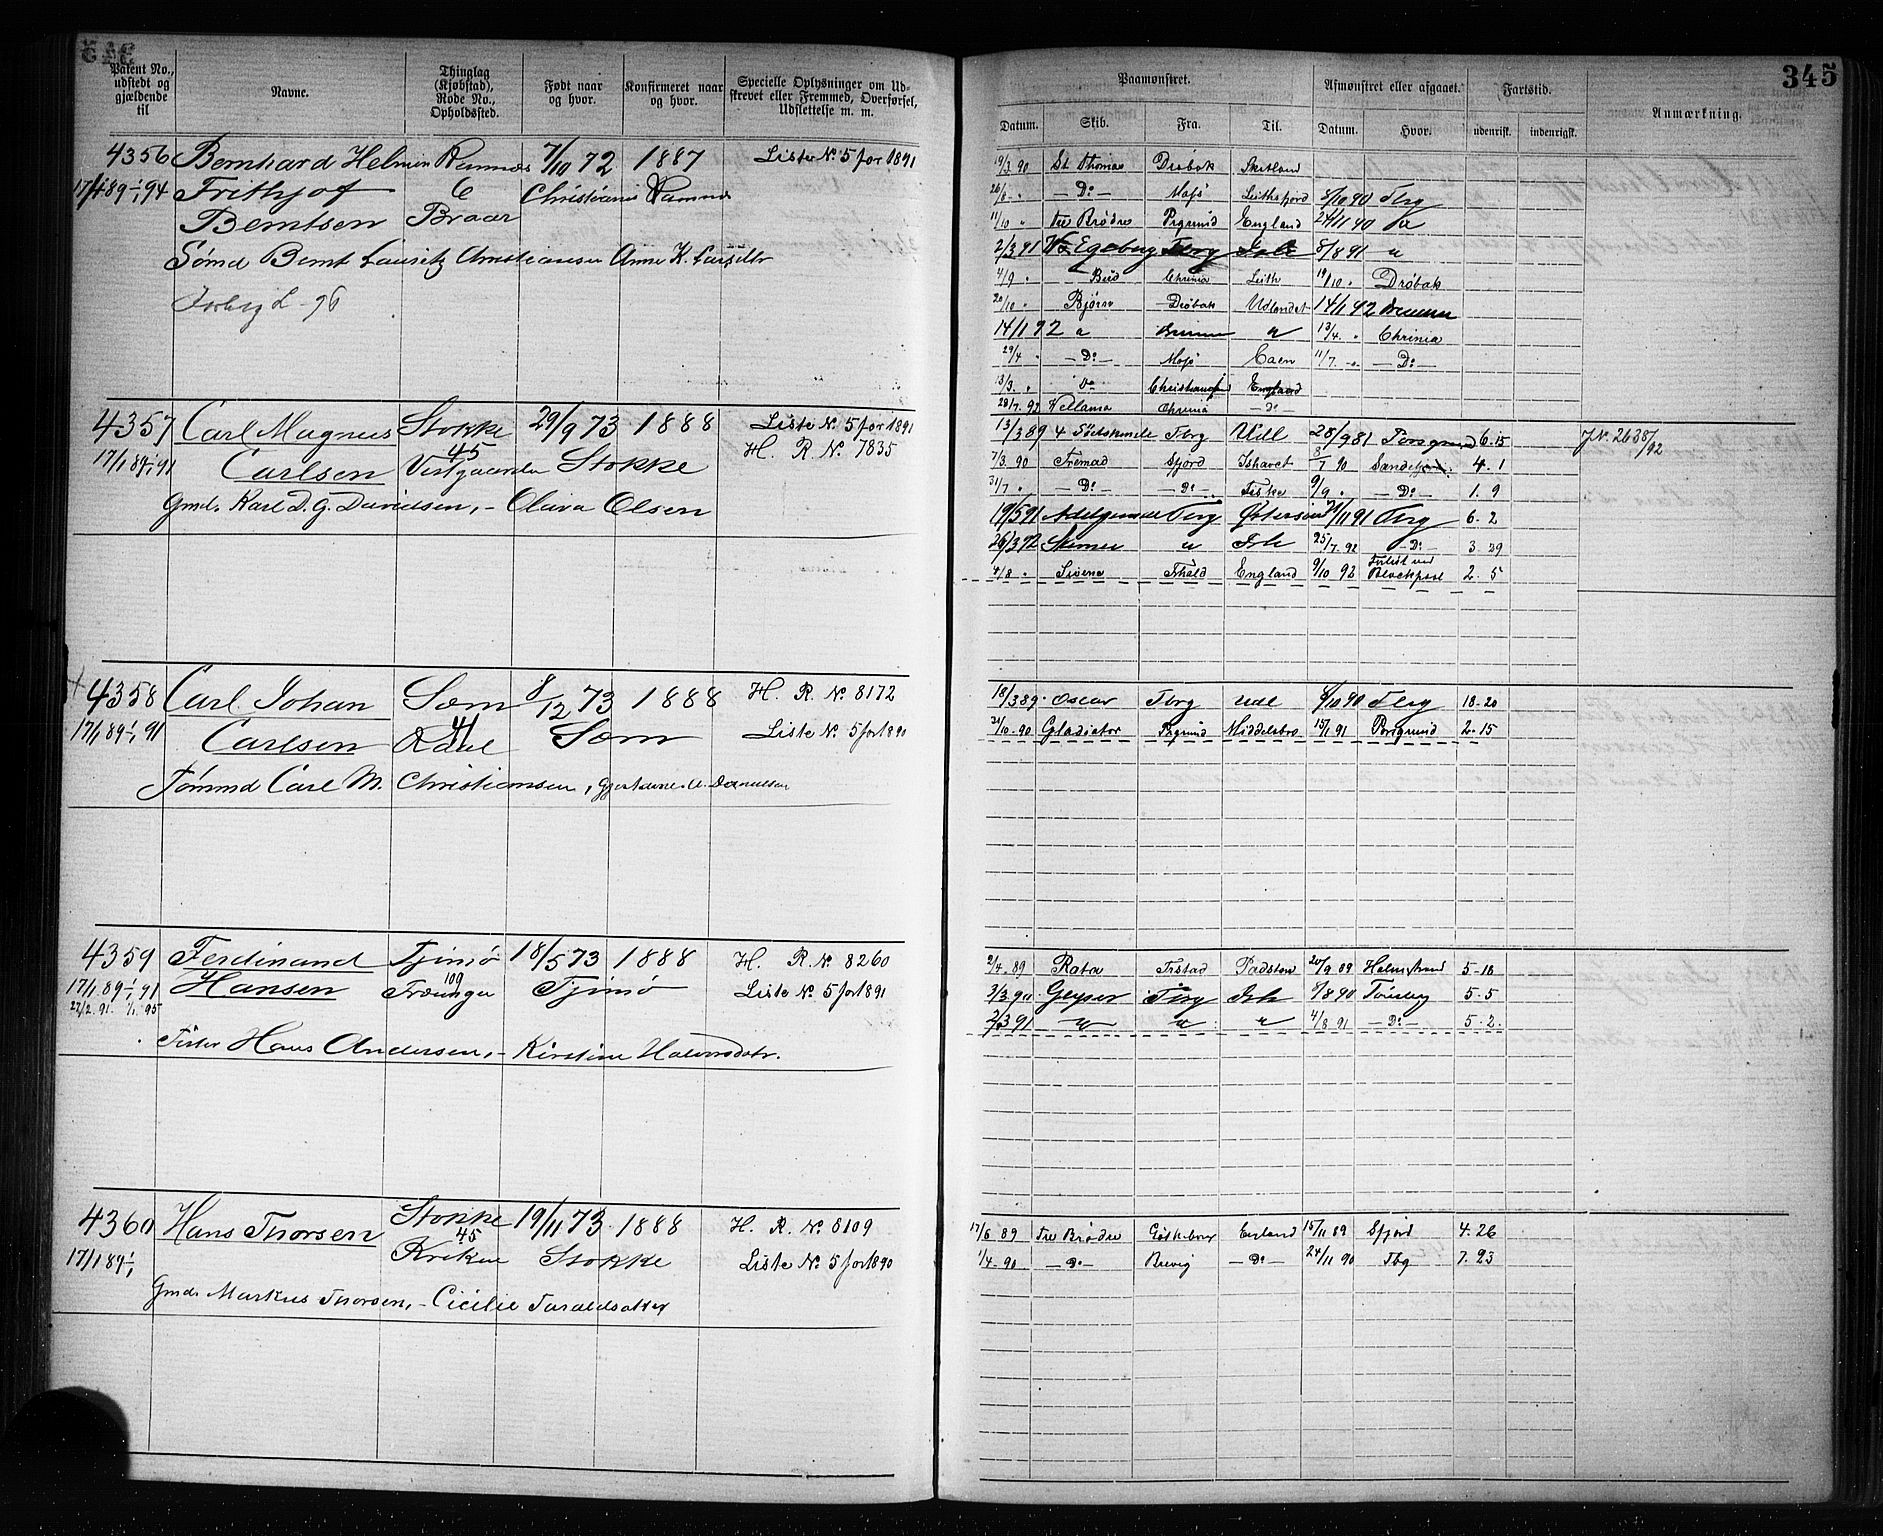 345
Patent No., udstedt og gjældende til
Navne.
Thinglag (Kjøbstad), Rode No., Opholdssted.
Født naar og hvor.
Konfirmeret naar og hvor.
Specielle Oplysninger om Udskrevet eller Fremmed, Overførsel, Udslettelse m. m.
Paamønstret.
Afmønstret eller afgaaet.
Fartstid.
Anmærkning.
Datum. Skib. Fra. Til. Datum. Hvor. udenrigsk. indenrigsk.
4356 Bernhard Helmin Ramnæs 7/10 72 1887 Liste No. 5 for 1891
17/1 89 1/1 94 Frithjof 6 Christiania Ramnæs
Berntsen Braar
Sømd Bernt Lauritz Christiansen Anne K. Larsdtr
19/3 90 St Thomas Drøbak Skotland
26/8 " — Do — Moss 8/10 90 Tbrg
11/10 " tre Brødre Prgrund England 24/11 90
2/3 91 Egeberg Tbrg Ish 8/8 91 "
4/9 " Chrinia Leith 19/10 " Drøbak
20/10 " Bjørn Drøbak Udlandet 14/1 92
14/1 92 " " 13/4 " Chrinia
29/4 " — Do — Moss Caen 11/7 " — Do —
13/3 " Do England
28/7 92 Vellamo Chrinia — Do —
4357 Carl Magnus Stokke 29/9 73 1888 Liste No. 5 for 1891
17/1 89 1/1 91 Carlsen 45 Vestgaarden Stokke H. R. No. 7835
Gmd. Karl D. G. Davidsen, – Oliva Olsen
13/3 89 4 Sødskende Tbrg Udl 28/9 81 Porsgrund 6.15 J.No. 2638/92
7/3 90 Fremad Sfjord Ishavet 8/7 90 Sandefjord 4.1
31/7 " — Do — — Do — Fiske 9/9 " — Do — 1.9
19/5 91 Adelgunde Tbrg Østersøen /11 91 Tbrg 6.2
26/3 92 Steinar " Ish 25/7 92 — Do — 3.29
4/8 " Sirene Fhald England 9/10 92 Forlist ved Blackpool 2.5
4358 Carl Johan Sem 8/12 73 1888 H. R. No. 8172
17/1 89 1/1 91 Carlsen 41 Sem Liste No. 5 for 1890
Tømmd Carl M. Christiansen,
18/3 89 Oscar Tbrg Udl 8/10 90 Tbrg 18.20
21/10 90 Gladiator Prgrund Middelsbro 15/1 91 Porsgrund 2.15
4359 Ferdinand Tjømø 18/5 73 1888 H. R. No. 8260
17/1 89 1/1 91 Hansen 109 Tjømø Liste No. 5 for 1891
27/2 91 1/1 95
Fisker Hans Andersen, – Kirstine Halvorsdatr.
2/4 89 Rota Frstad Padstow 20/9 89 Holmestrand 5.18
3/3 90 Geyser Tbrg Ish 8/8 90 Tønsberg 5.5
2/3 91 " " " 4/8 91 — Do — 5.2
4360 Hans Thorsen Stokke 19/11 73 1888 H. R. No. 8109
17/1 89 1/1 45 Stokke Liste No. 5 for 1890
Gmd. Markus Thorsen, – Cicilie Taraldsatter
17/6 89 Tre Brødre Gøteborg England 15/11 89 Sfjord 4.26
1/4 90 — Do — Brevig — Do — 24/11 90 Tbg 7.23